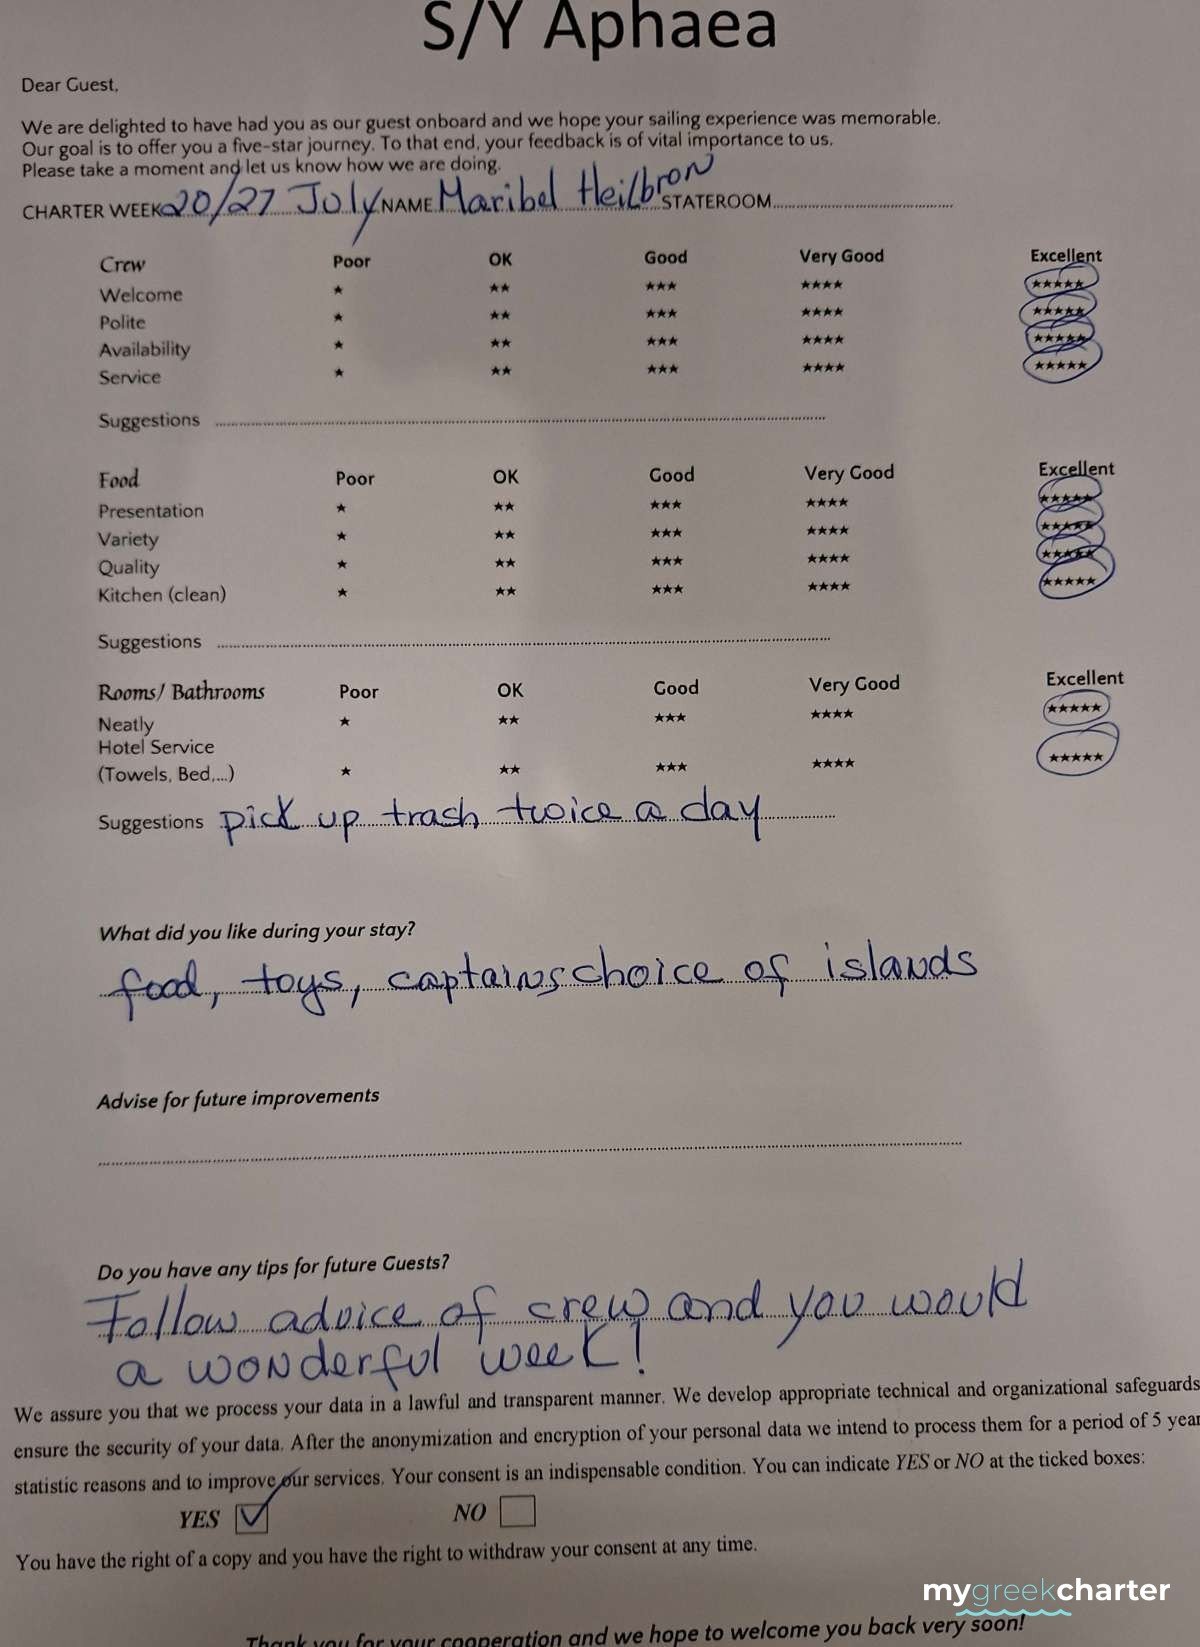 S/Y Aphaea
Dear Guest,
We are delighted to have had you as our guest onboard and we hope your sailing experience was memorable.
Our goal is to offer you a five-star journey. To that end, your feedback is of vital importance to us.
Please take a moment and let us know how we are doing.
CHARTER WEEK 20/27 July NAME Maribel Heilbron STATEROOM
Crew Poor OK Good Very Good Excellent
Welcome ★ ★★ ★★★ ★★★★ ★★★★★
Polite ★ ★★ ★★★ ★★★★ ★★★★★
Availability ★ ★★ ★★★ ★★★★ ★★★★★
Service ★ ★★ ★★★ ★★★★ ★★★★★
Suggestions
Food Poor OK Good Very Good Excellent
Presentation ★ ★★ ★★★ ★★★★ ★★★★★
Variety ★ ★★ ★★★ ★★★★ ★★★★★
Quality ★ ★★ ★★★ ★★★★ ★★★★★
Kitchen (clean) ★ ★★ ★★★ ★★★★ ★★★★★
Suggestions
Rooms/ Bathrooms Poor OK Good Very Good Excellent
Neatly ★ ★★ ★★★ ★★★★ ★★★★★
Hotel Service
(Towels, Bed,...) ★ ★★ ★★★ ★★★★ ★★★★★
Suggestions pick up trash twice a day
What did you like during your stay?
food, toys, captains choice of islands
Advise for future improvements
Do you have any tips for future Guests?
Follow advice of crew and you would
a wonderful week!
We assure you that we process your data in a lawful and transparent manner. We develop appropriate technical and organizational safeguards
ensure the security of your data. After the anonymization and encryption of your personal data we intend to process them for a period of 5 year
statistic reasons and to improve our services. Your consent is an indispensable condition. You can indicate YES or NO at the ticked boxes:
YES ☑ NO ☐
You have the right of a copy and you have the right to withdraw your consent at any time.
mygreekcharter
Thank you for your cooperation and we hope to welcome you back very soon!